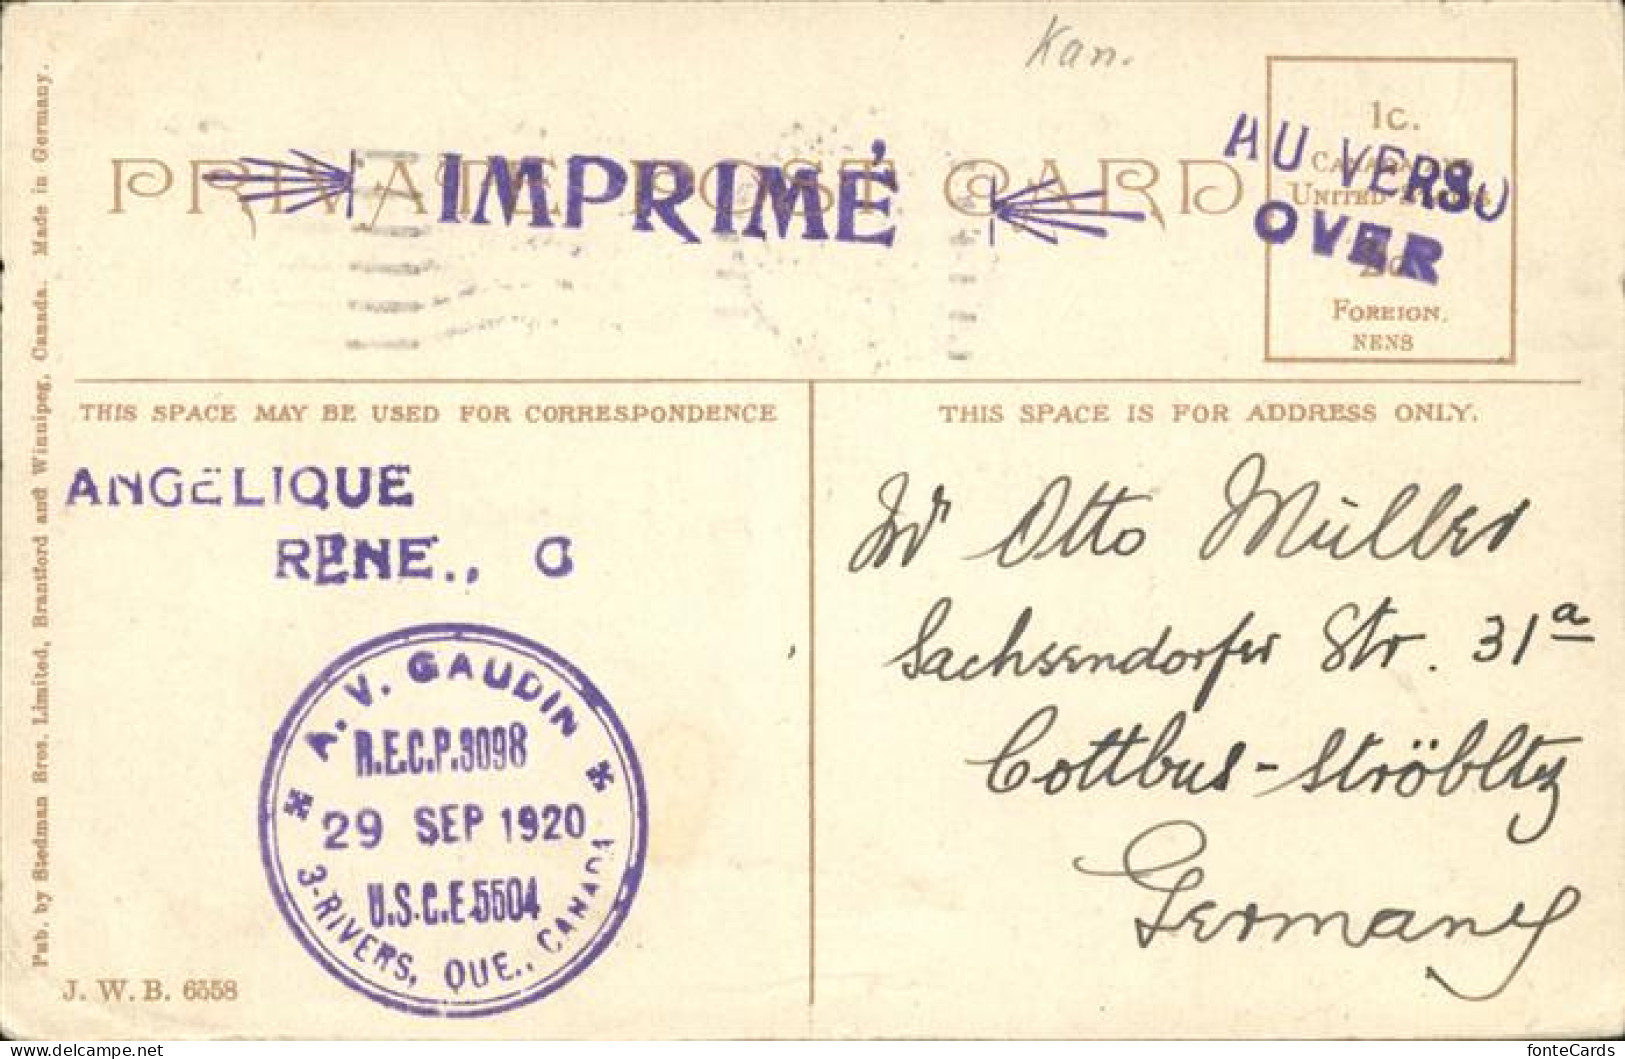 Kan.
PRIVATE POST CARD
IMPRIMÉ
1c.
AU VERSO
OVER
FOREIGN.
NENS
THIS SPACE MAY BE USED FOR CORRESPONDENCE
THIS SPACE IS FOR ADDRESS ONLY.
ANGELIQUE
RENE., C
A. V. GAUDIN
R.E.C.P.3098
29 SEP 1920
U.S.C.E.5504
3-RIVERS, QUE., CANADA
Otto Müller
Sachsendorfer Str. 31a
Cottbus-Ströbitz
Germany
Pub. by Stedman Bros. Limited, Brantford and Winnipeg, Canada. Made in Germany.
J. W. B. 6558
delcampe.net
fonteCards